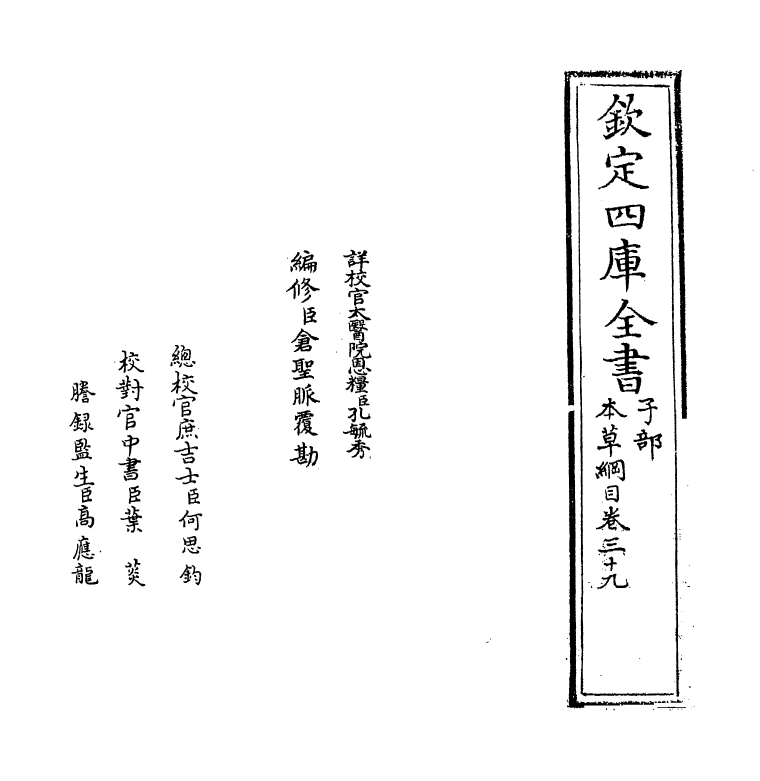 欽定四庫全書
子部
本草綱目卷三十九
詳校官太醫院恩糧臣孔毓秀
編修臣倉聖脈覆勘
總校官庶吉士臣何思鈞
校對官中書臣葉菼
謄録監生臣高應龍